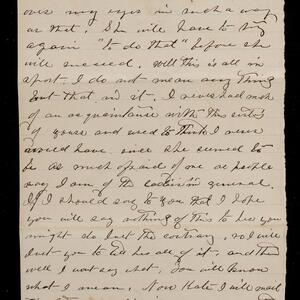 over my eyes in such a way
as that. She will have to try
again "to do that" before she
will succeed. Well this is all in
sport, I do not mean any thing
but that, in it, I never had much
of an acquaintance with this sister
of yours and used to think I never
would have, since she seemed to
be as much afraid of me as people
say I am of the ladies in general.
If I should say to you that I hope
you will say nothing of this to her you
might do just the contrary, so I will
just you to tell her all of it, and then
well I wont say what, You will know
what I mean. Now Kate I will